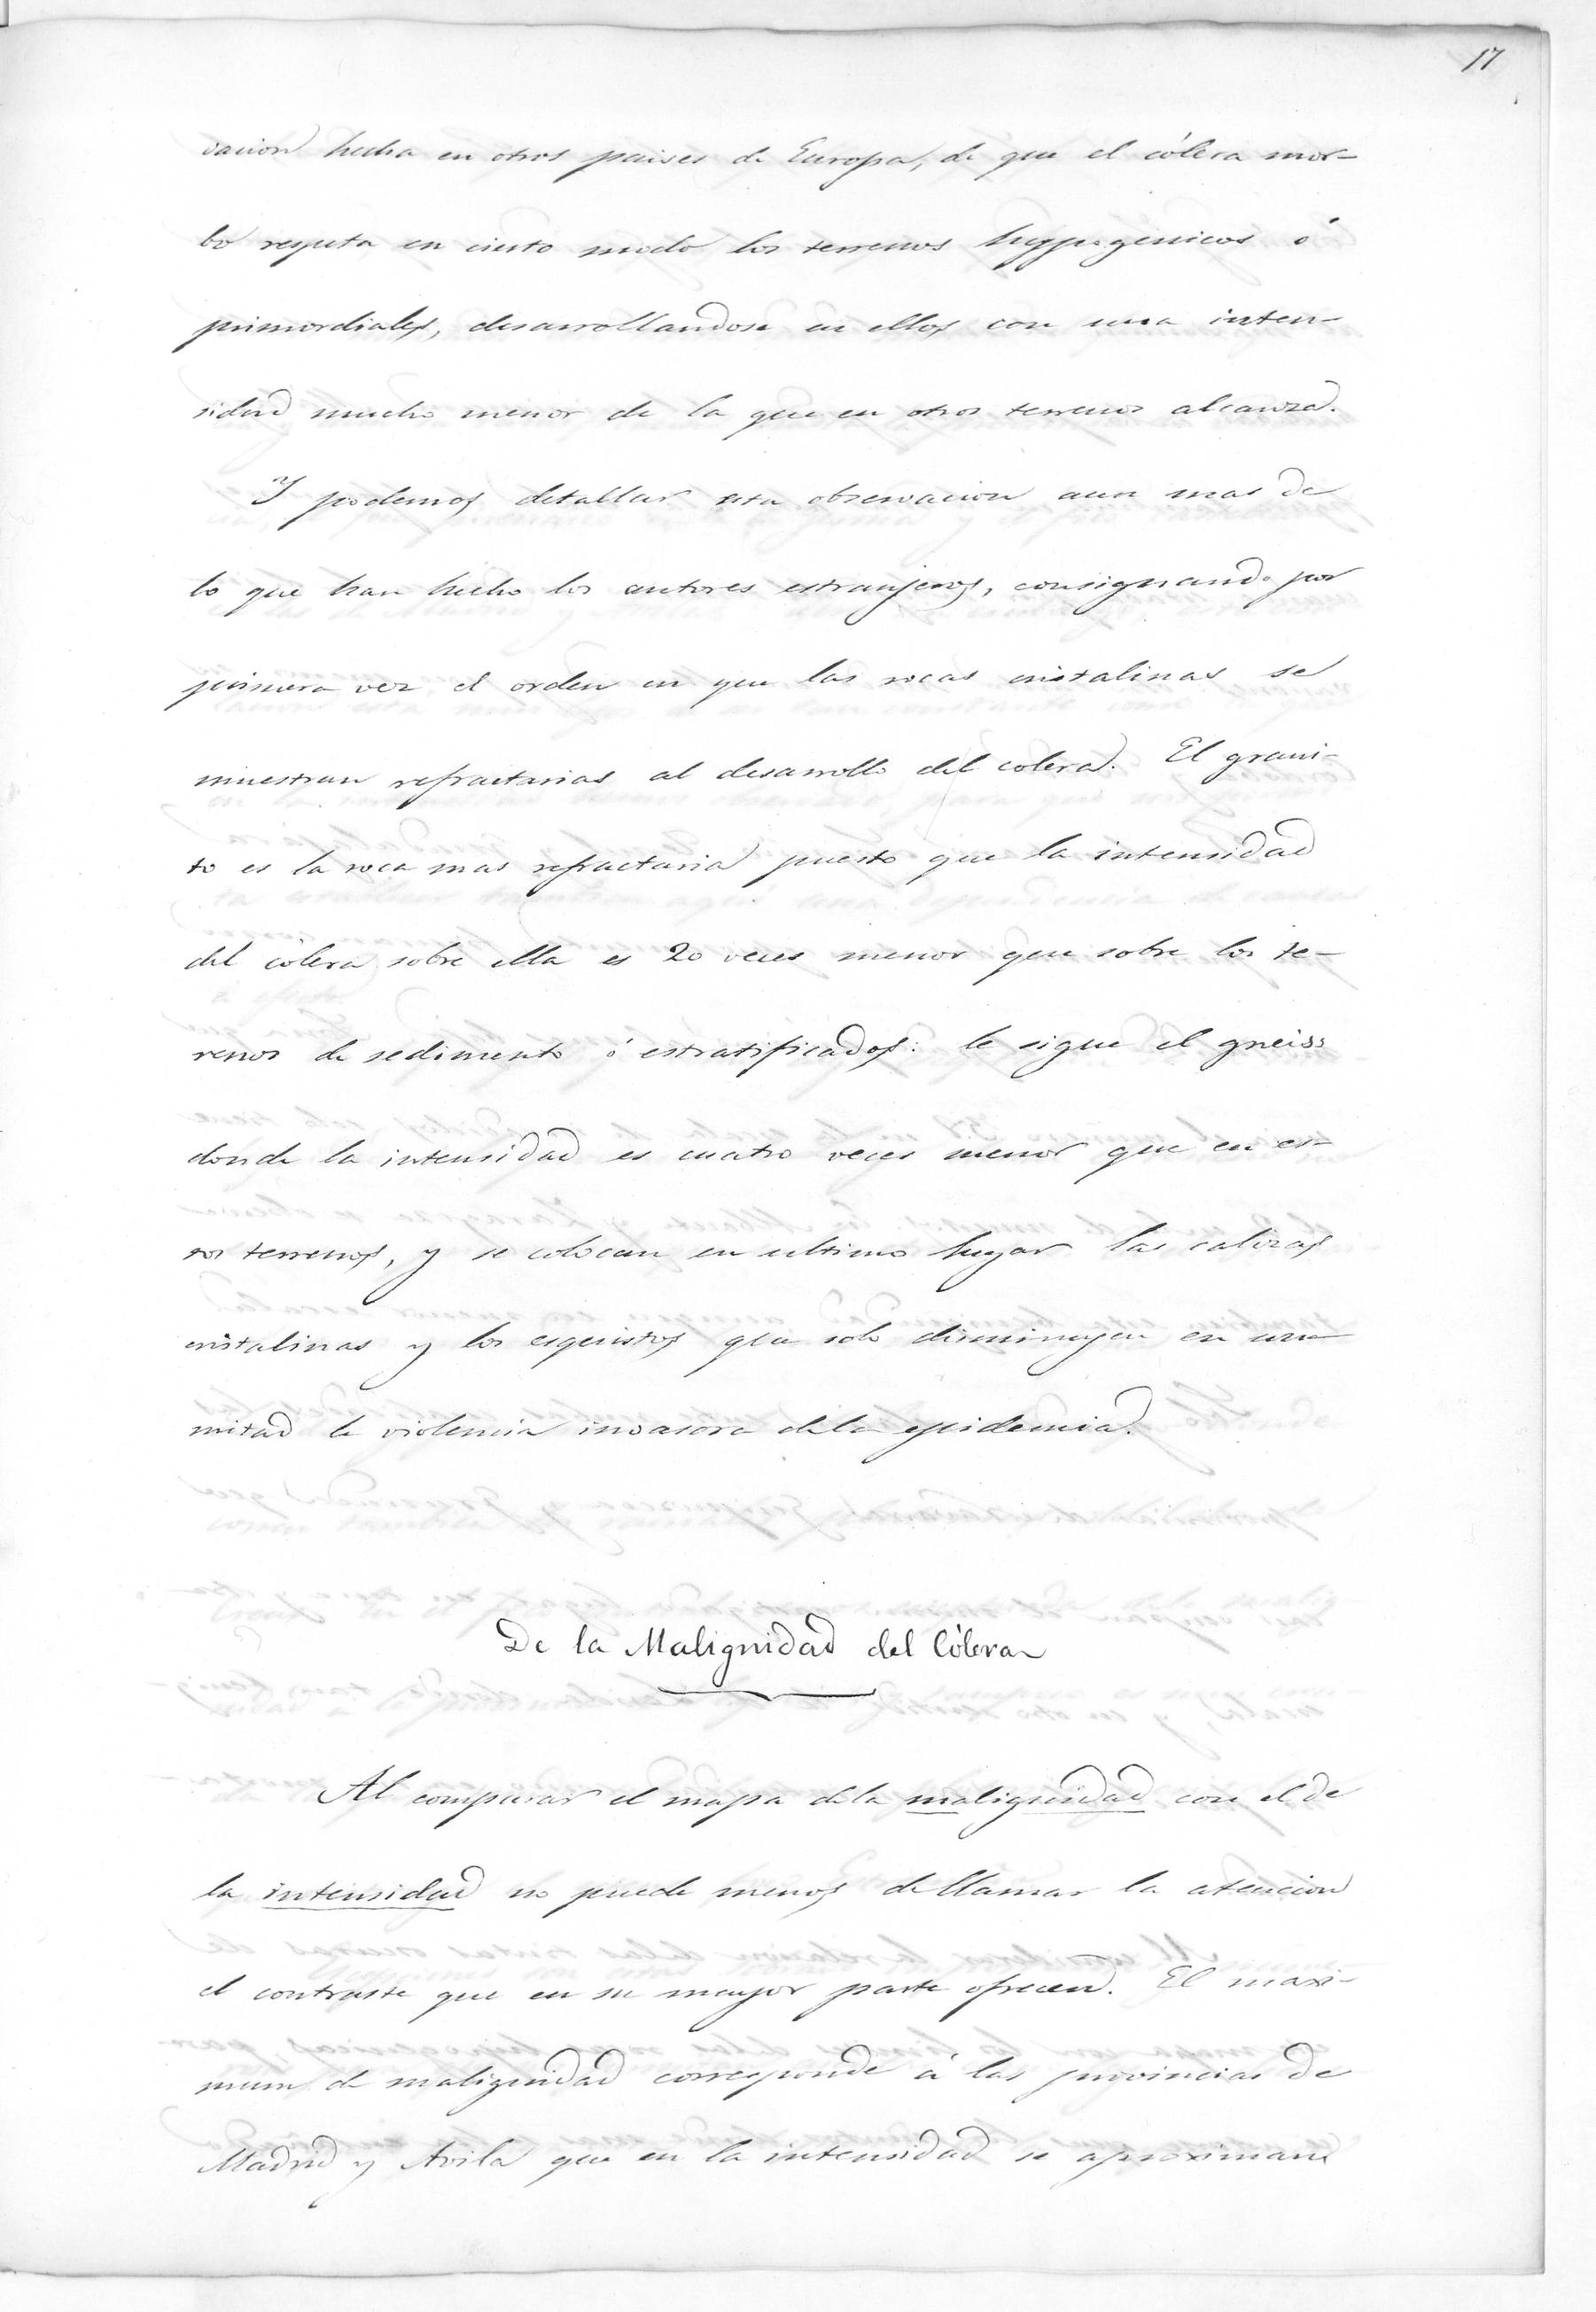 17
vacion hecha en otros paises de Europa, de que el cólera mor-
bo respeta en cierto modo los terrenos hyppogenicos ó
primordiales, desarrollandose en ellos con una inten-
sidad mucho menor de la que en otros terrenos alcanza.
Y podemos detallar esta observacion aun mas de
lo que han hecho los autores estranjeros, consignando por
primera vez el orden en que las rocas cristalinas se
muestran refractarias al desarrollo del colera. El grani-
to es la roca mas refractaria puesto que la intensidad
del cólera sobre ella es 20 veces menor que sobre los te-
renos de sedimento ó estratificados: le sigue el gneiss
donde la intensidad es cuatro veces menor que en es-
tos terrenos, y se colocan en ultimo lugar las calizas
cristalinas y los esquistos que solo disminuyen en una
mitad la violencia invasora dela epidemia.
De la Malignidad del Cólera
Al comparar el mapa dela malignidad con el de
la intensidad no puede menos de llamar la atencion
el contraste que en su mayor parte ofrecen. El maxi-
mum de malignidad corresponde á las provincias de
Madrid y Avila que en la intensidad se aproximan